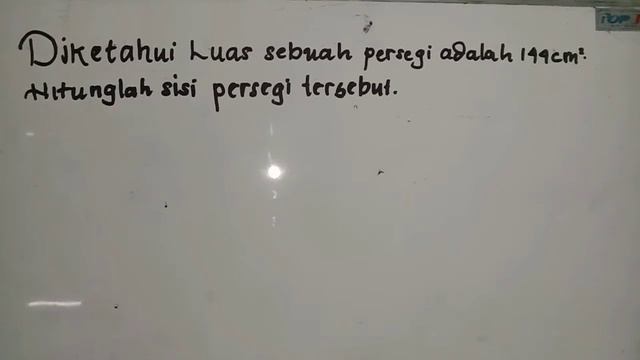 Diketahui Luas sebuah persegi adalah 144cm².
Hitunglah sisi persegi tersebut.
TOP